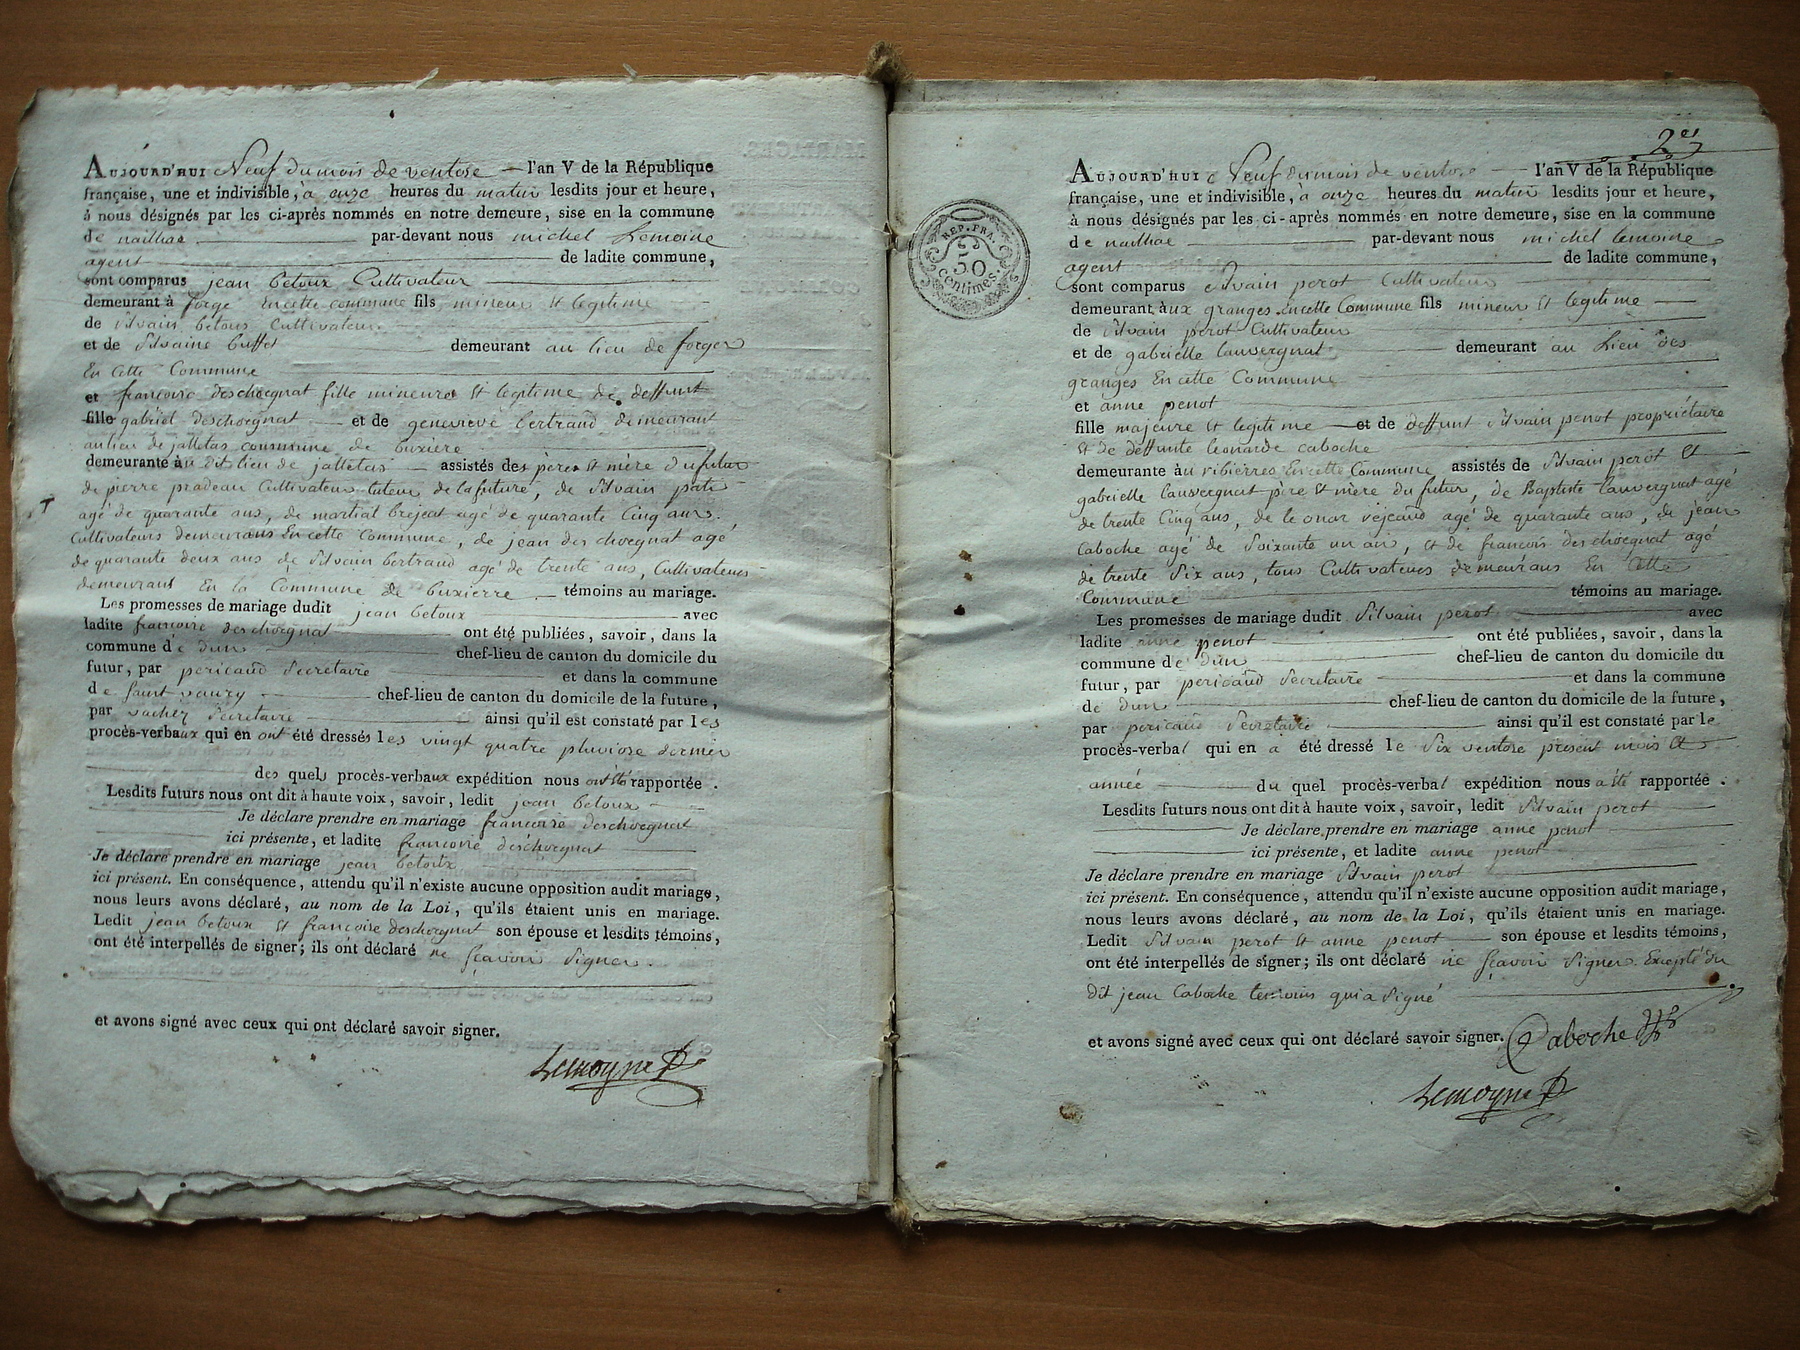 Aujourd'hui Neuf du mois de ventose l'an V de la République
française, une et indivisible, à onze heures du matin lesdits jour et heure,
à nous désignés par les ci-après nommés en notre demeure, sise en la commune
de naillac par-devant nous michel Lemoine
agent de ladite commune,
sont comparus jean betoux Cultivateur
demeurant à forge En cette commune fils mineur Et legitime
de silvain betoux Cultivateur
et de Silvaine buffet demeurant au lieu de forges
En Cette Commune
et francoise deschoegnat fille mineure Et legitime de deffunt
fille gabriel deschoegnat et de genevieve bertrand demeurant
au lieu de jalletas commune de buxiere
demeurante à u dit lieu de jalletas assistés des peres Et mère du futur
de pierre pradeau Cultivateur tuteur de la future, de Silvain paté
agé de quarante ans, de martial brejeat agé de quarante Cinq ans.
Cultivateurs demeurans En cette Commune, de jean deschoegnat agé
de quarante deux ans de Silvain bertrand agé de trente ans, Cultivateurs
demeurant En la Commune de buxierre témoins au mariage.
Les promesses de mariage dudit jean betoux avec
ladite francoise deschoegnat ont été publiées, savoir, dans la
commune de dun chef-lieu de canton du domicile du
futur, par pericaud Secretaire et dans la commune
de Saint vaury chef-lieu de canton du domicile de la future,
par vachez Secretaire ainsi qu'il est constaté par les
procès-verbaux qui en ont été dressés les vingt quatre pluviose dernier
des quels procès-verbaux expédition nous ont été rapportée.
Lesdits futurs nous ont dit à haute voix, savoir, ledit jean betoux
Je déclare prendre en mariage francoise deschoegnat
ici présente, et ladite francoise deschoegnat
Je déclare prendre en mariage jean betoux
ici présent. En conséquence, attendu qu'il n'existe aucune opposition audit mariage,
nous leurs avons déclaré, au nom de la Loi, qu'ils étaient unis en mariage.
Ledit jean betoux Et francoise deschoegnat son épouse et lesdits témoins,
ont été interpellés de signer; ils ont déclaré ne sçavoir Signer.
et avons signé avec ceux qui ont déclaré savoir signer.
Lemoyne
Aujourd'hui Neuf du mois de ventose l'an V de la République
française, une et indivisible, à onze heures du matin lesdits jour et heure,
à nous désignés par les ci-après nommés en notre demeure, sise en la commune
de naillac par-devant nous michel lemoine
agent de ladite commune,
sont comparus Silvain perot Cultivateur
demeurant àux granges En cette Commune fils mineur Et legitime
de Silvain perot Cultivateur
et de gabrielle lauvergnat demeurant au Lieu des
granges En cette Commune
et anne penot
fille majeure Et legitime et de deffunt Silvain penot propriétaire
Et de deffunte leonarde caboche
demeurante àu ribierres En cette Commune assistés de Silvain perot Et
gabrielle lauvergnat père Et mère du futur, de Baptiste lauvergnat agé
de trente Cinq ans, de leonar vejeaud agé de quarante ans, de jean
Caboche agé de Soixante un an, Et de francois deschoegnat agé
de trente Six ans, tous Cultivateurs demeurans En Cette
Commune témoins au mariage.
Les promesses de mariage dudit Silvain perot avec
ladite anne penot ont été publiées, savoir, dans la
commune de dun chef-lieu de canton du domicile du
futur, par pericaud Secretaire et dans la commune
de dun chef-lieu de canton du domicile de la future,
par pericaud Secretaire ainsi qu'il est constaté par le
procès-verbal qui en a été dressé le Six ventose present mois Et
année du quel procès-verbal expédition nous a été rapportée.
Lesdits futurs nous ont dit à haute voix, savoir, ledit Silvain perot
Je déclare prendre en mariage anne penot
ici présente, et ladite anne penot
Je déclare prendre en mariage Silvain perot
ici présent. En conséquence, attendu qu'il n'existe aucune opposition audit mariage,
nous leurs avons déclaré, au nom de la Loi, qu'ils étaient unis en mariage.
Ledit Silvain perot Et anne penot son épouse et lesdits témoins,
ont été interpellés de signer; ils ont déclaré ne sçavoir Signer Excepté du
dit jean Caboche temoins qui a Signé
et avons signé avec ceux qui ont déclaré savoir signer. Caboche
Lemoyne
REP. FRA.
50
centimes.